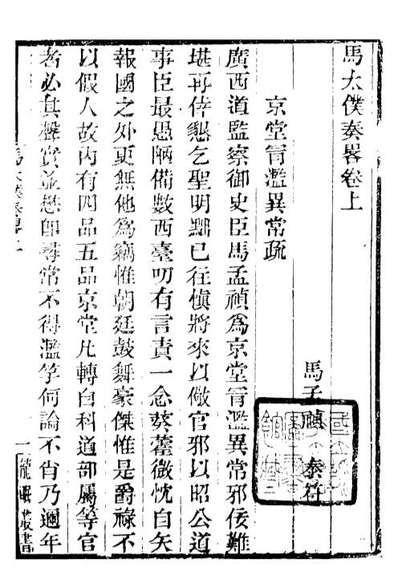 馬太僕奏畧卷上
馬孟禎 泰符
京堂冐濫異常疏
廣西道監察御史臣馬孟禎為京堂冐濫異常邪佞難
堪再倖懇乞聖明黜已往慎將來以儆官邪以昭公道
事臣最愚陋備數西臺叨有言責一念葵藿微忱自矢
報國之外更無他為竊惟朝廷鼓舞豪傑惟是爵祿不
以假人故內有四品五品京堂凡轉自科道部屬等官
者必其聲實並懋即尋常不得濫竽何論不肖乃邇年
馬太僕奏畧上
一
龍眠叢書